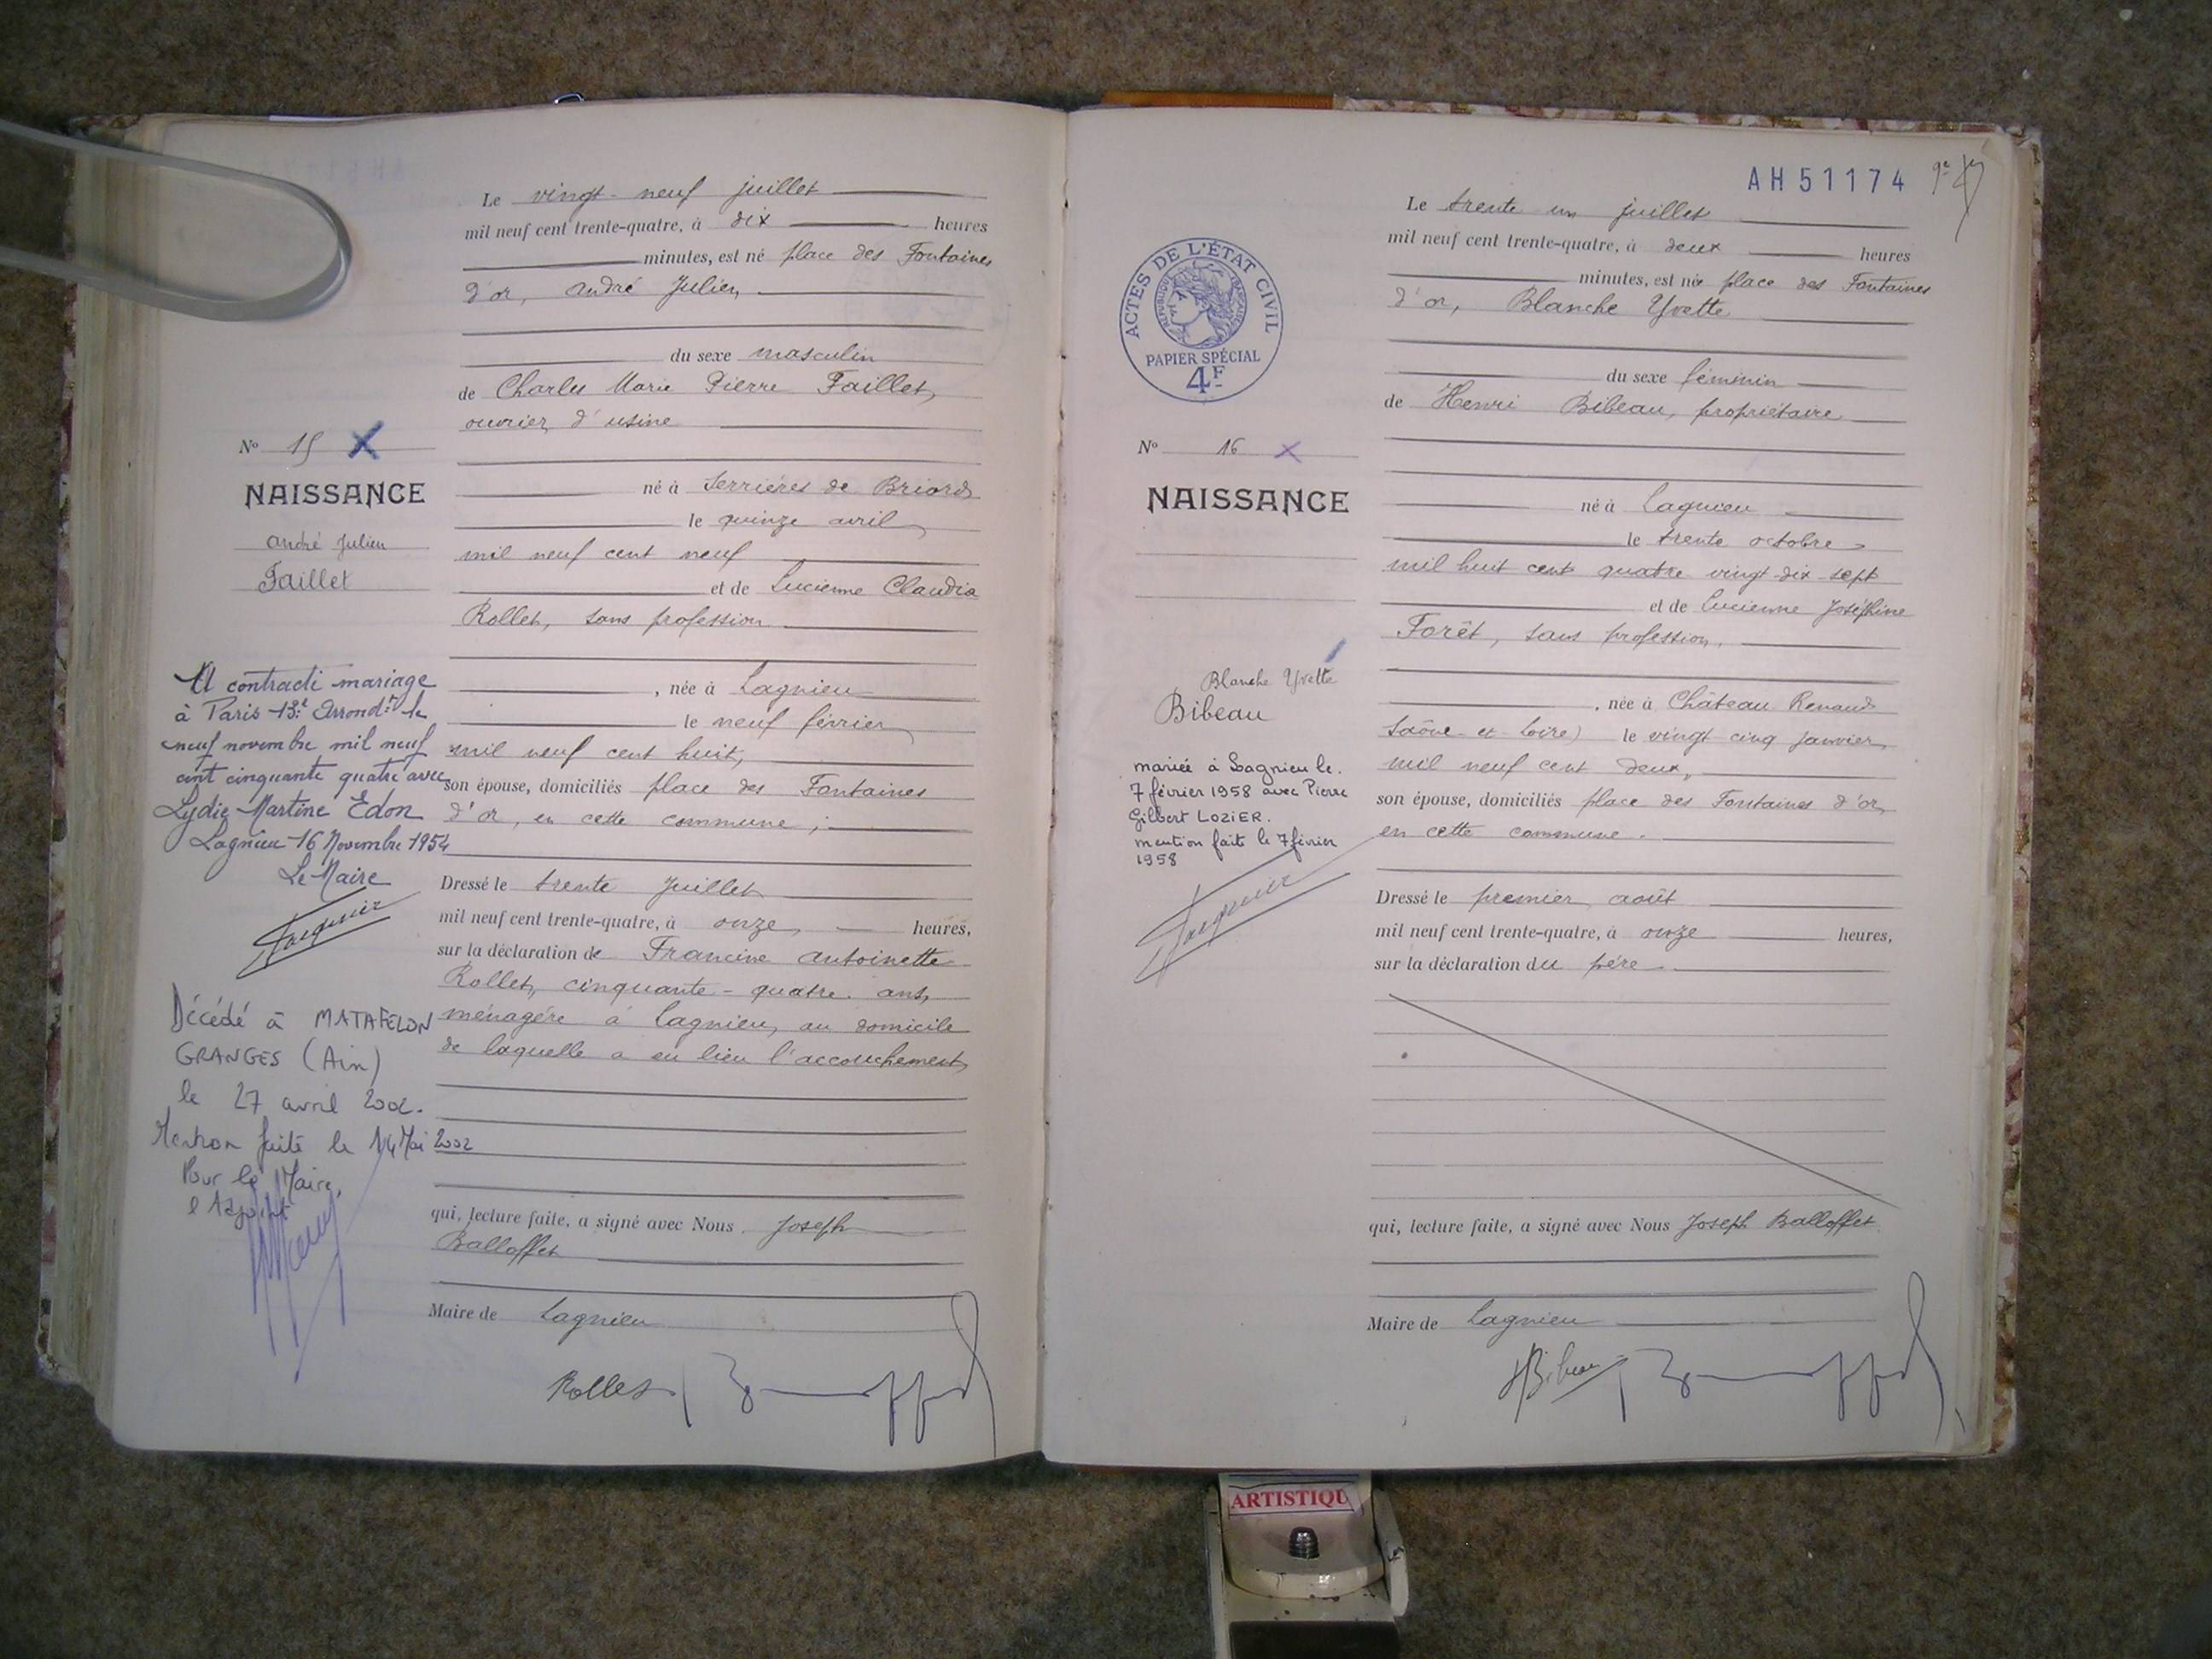 Le vingt-neuf juillet
mil neuf cent trente-quatre, à dix heures
minutes, est né place des Fontaines
d'or, André Julien
du sexe masculin
de Charles Marie Pierre Faillet,
ouvrier d'usine
né à Serrières de Briord
le quinze avril
mil neuf cent neuf
et de Lucienne Claudia
Rollet, sans profession
, née à Lagnieu
le neuf février
mil neuf cent huit,
son épouse, domiciliés place des Fontaines
d'or, en cette commune ;
Dressé le trente Juillet
mil neuf cent trente-quatre, à onze, heures,
sur la déclaration de Francine Antoinette
Rollet, cinquante-quatre ans,
ménagère à Lagnieu, au domicile
de laquelle a eu lieu l'accouchement,
qui, lecture faite, a signé avec Nous Joseph
Balloffet
Maire de Lagnieu
Rollet
No 15 X
NAISSANCE
André Julien
Faillet
A contracté mariage
à Paris 13e Arrondt le
neuf novembre mil neuf
cent cinquante quatre avec
Lydie-Martine Edon
Lagnieu 16 Novembre 1954
Le Maire
Décédé à MATAFELON
GRANGES (Ain)
le 27 avril 2002.
Mention faite le 14 Mai 2002
Pour le Maire,
l'Adjoint
AH51174
ACTES DE L'ÉTAT CIVIL
RÉPUBLIQUE FRANÇAISE
PAPIER SPÉCIAL
4F
Le trente un juillet
mil neuf cent trente-quatre, à deux heures
minutes, est née place des Fontaines
d'or, Blanche Yvette
du sexe féminin
de Henri Bibeau, propriétaire
né à Lagnieu
le trente octobre
mil huit cent quatre vingt-dix-sept
et de Lucienne Joséphine
Forêt, sans profession,
, née à Château Renaud
Saône-et-Loire) le vingt cinq janvier
mil neuf cent deux,
son épouse, domiciliés place des Fontaines d'or
en cette commune.
Dressé le premier août
mil neuf cent trente-quatre, à onze heures,
sur la déclaration du père
qui, lecture faite, a signé avec Nous Joseph Balloffet
Maire de Lagnieu
HBibeau
No 16 X
NAISSANCE
Blanche Yvette
Bibeau
mariée à Lagnieu le
7 février 1958 avec Pierre
Gilbert LOZIER.
mention faite le 7 février
1958
ARTISTIQU